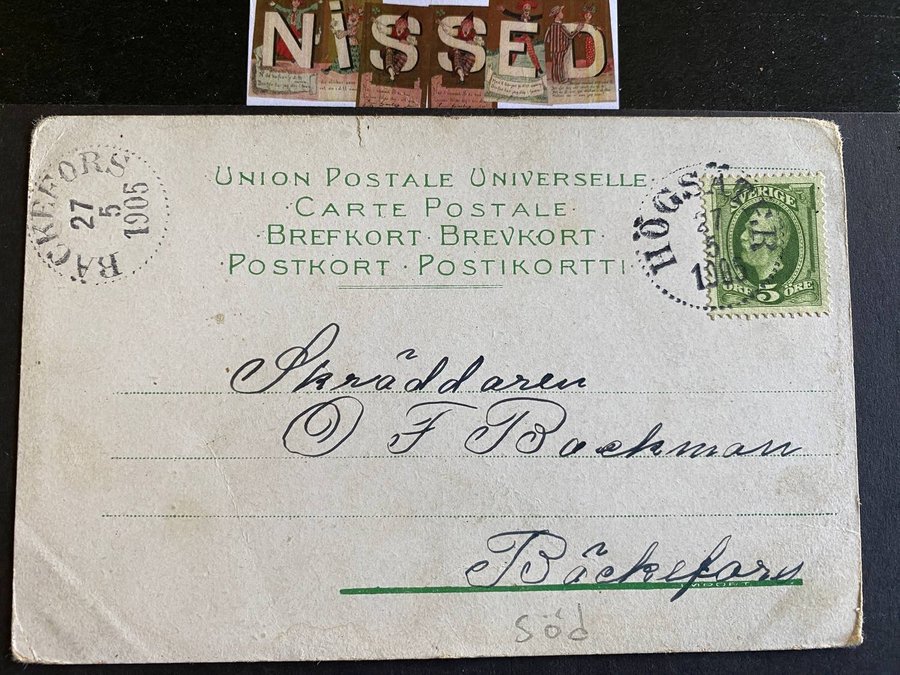 NISSED
BÄCKEFORS
27
5
1905
UNION POSTALE UNIVERSELLE
CARTE POSTALE
BREFKORT · BREVKORT
POSTKORT · POSTIKORTTI
HÖGSÄTER
27
5
1905
SVERIGE
ÖRE 5 ÖRE
Skräddaren
O F Backman
Bäckefors
IMPORT
söd